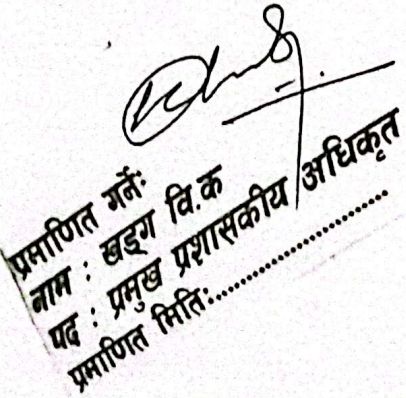 प्रमाणित गर्नेः
नाम : खड्ग वि.क
पद : प्रमुख प्रशासकीय अधिकृत
प्रमाणित मितिः..............................